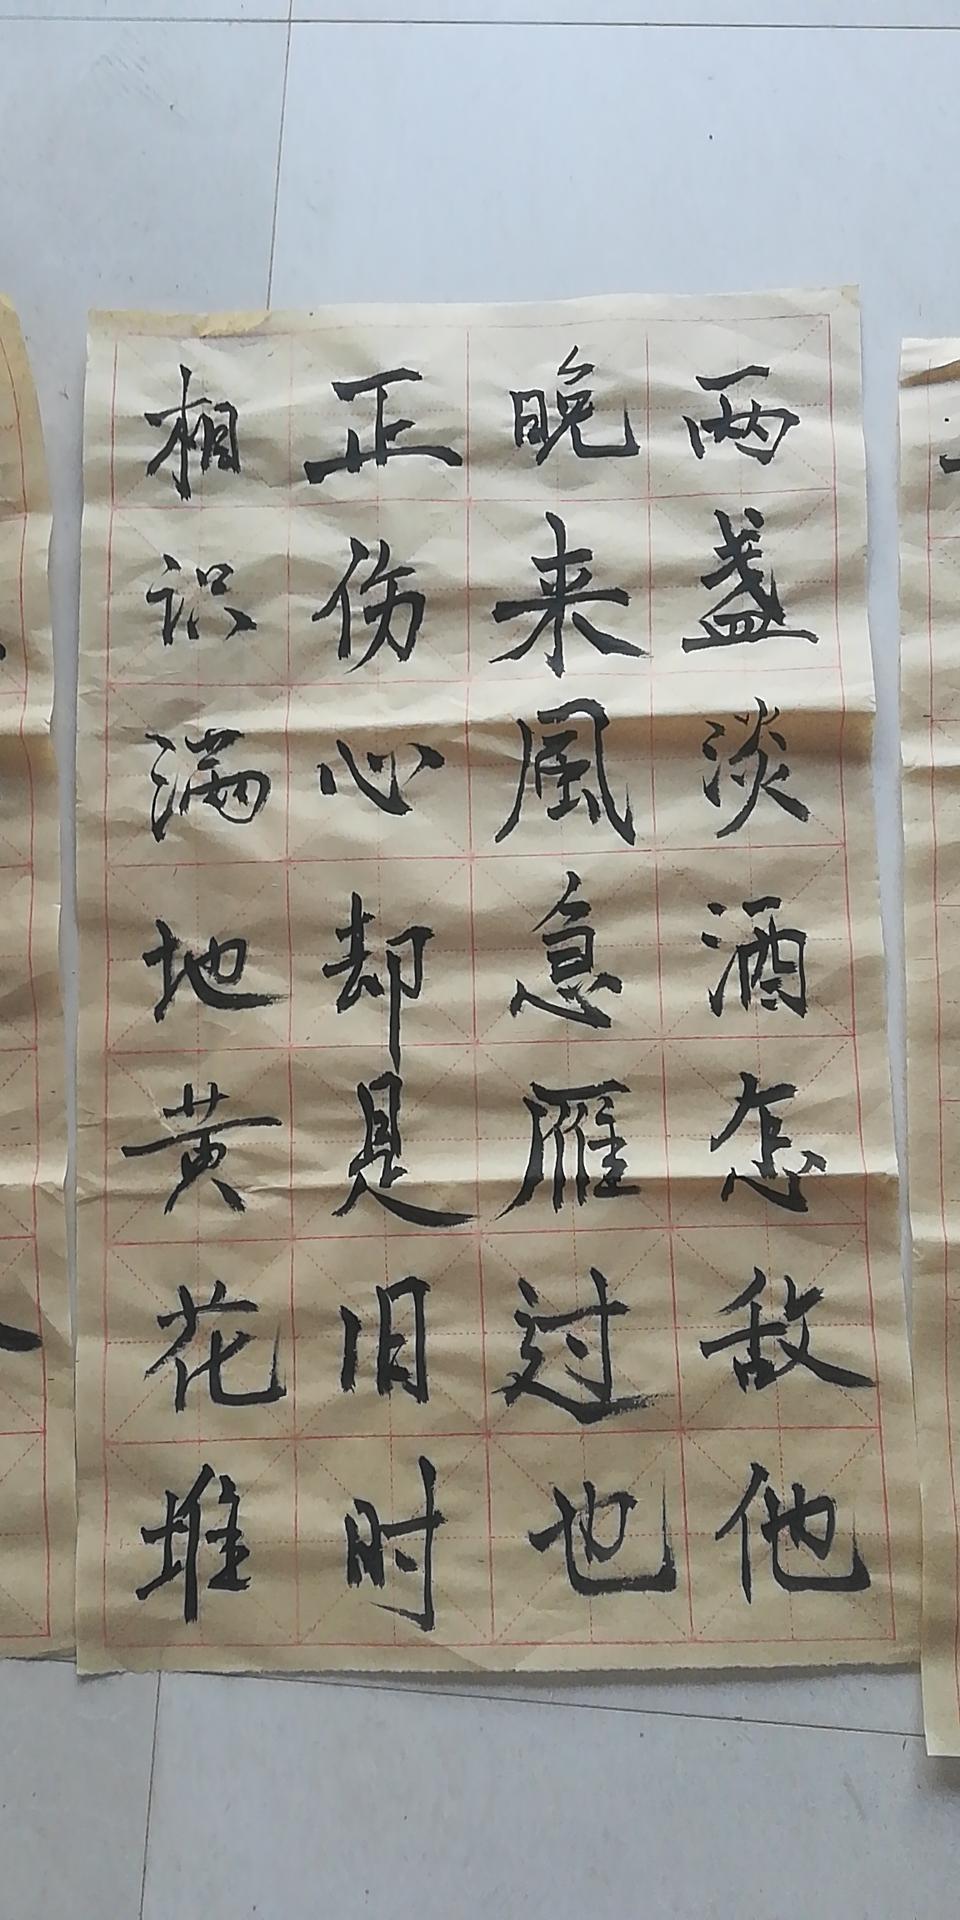 两盏淡酒怎敌他
晚来風急雁过也
正伤心却是旧时
相识满地黄花堆